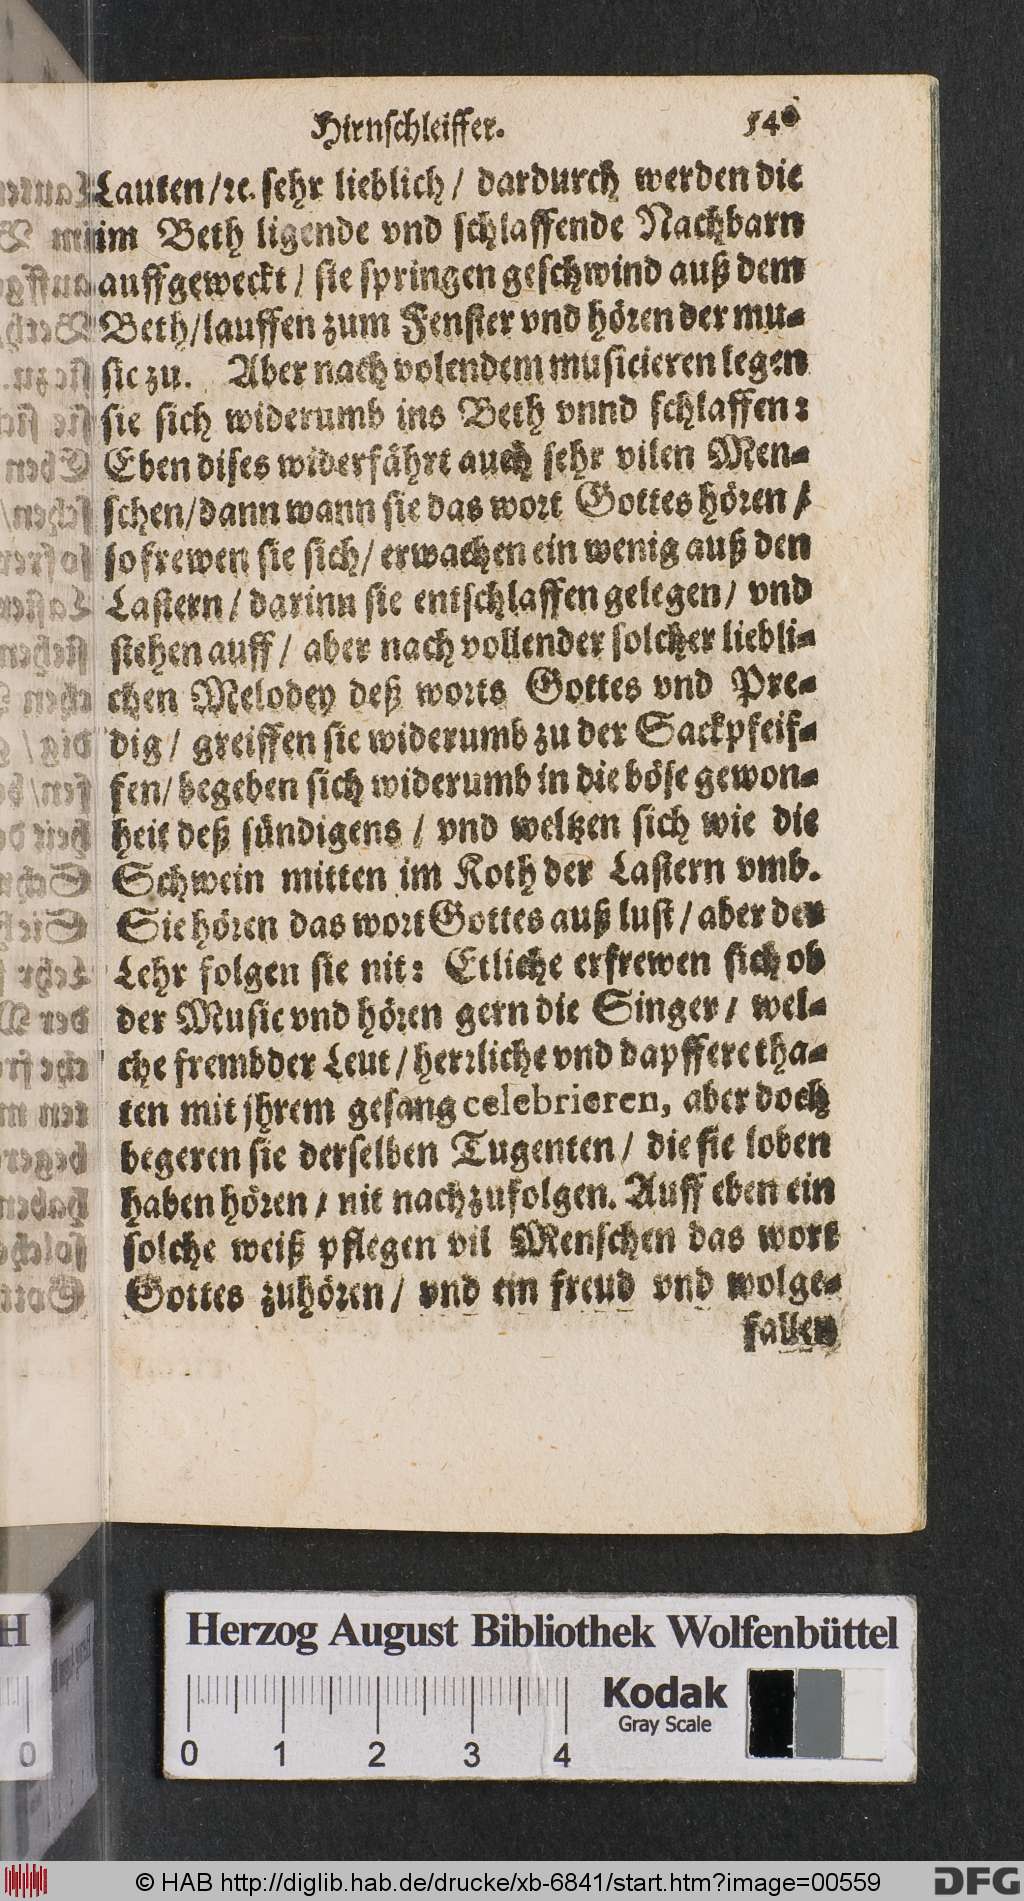 Hirnschleiffer. 54
Lauten/ꝛc. sehr lieblich/ dardurch werden die
im Beth ligende vnd schlaffende Nachbarn
auffgeweckt/ sie springen geschwind auß dem
Beth/lauffen zum Fenster vnd hören der mu-
sic zu. Aber nach volendem musicieren legen
sie sich widerumb ins Beth vnnd schlaffen:
Eben dises widerfährt auch sehr vilen Men-
schen/dann wann sie das wort Gottes hören/
so frewen sie sich/ erwachen ein wenig auß den
Lastern/ darinn sie entschlaffen gelegen/ vnd
stehen auff/ aber nach vollender solcher liebli-
chen Melodey deß worts Gottes vnd Pre-
dig/ greiffen sie widerumb zu der Sackpfeif-
fen/ begeben sich widerumb in die böse gewon-
heit deß sündigens/ vnd weltzen sich wie die
Schwein mitten im Koth der Lastern vmb.
Sie hören das wort Gottes auß lust/ aber der
Lehr folgen sie nit: Etliche erfrewen sich ob
der Music vnd hören gern die Singer/ wel-
che frembder Leut/ herrliche vnd dapffere tha-
ten mit jhrem gesang celebrieren, aber doch
begeren sie derselben Tugenten/ die sie loben
haben hören/ nit nachzufolgen. Auff eben ein
solche weiß pflegen vil Menschen das wort
Gottes zuhören/ vnd ein freud vnd wolge-
fallen
Herzog August Bibliothek Wolfenbüttel
Kodak
Gray Scale
0 1 2 3 4
H
0
© HAB http://diglib.hab.de/drucke/xb-6841/start.htm?image=00559
DFG